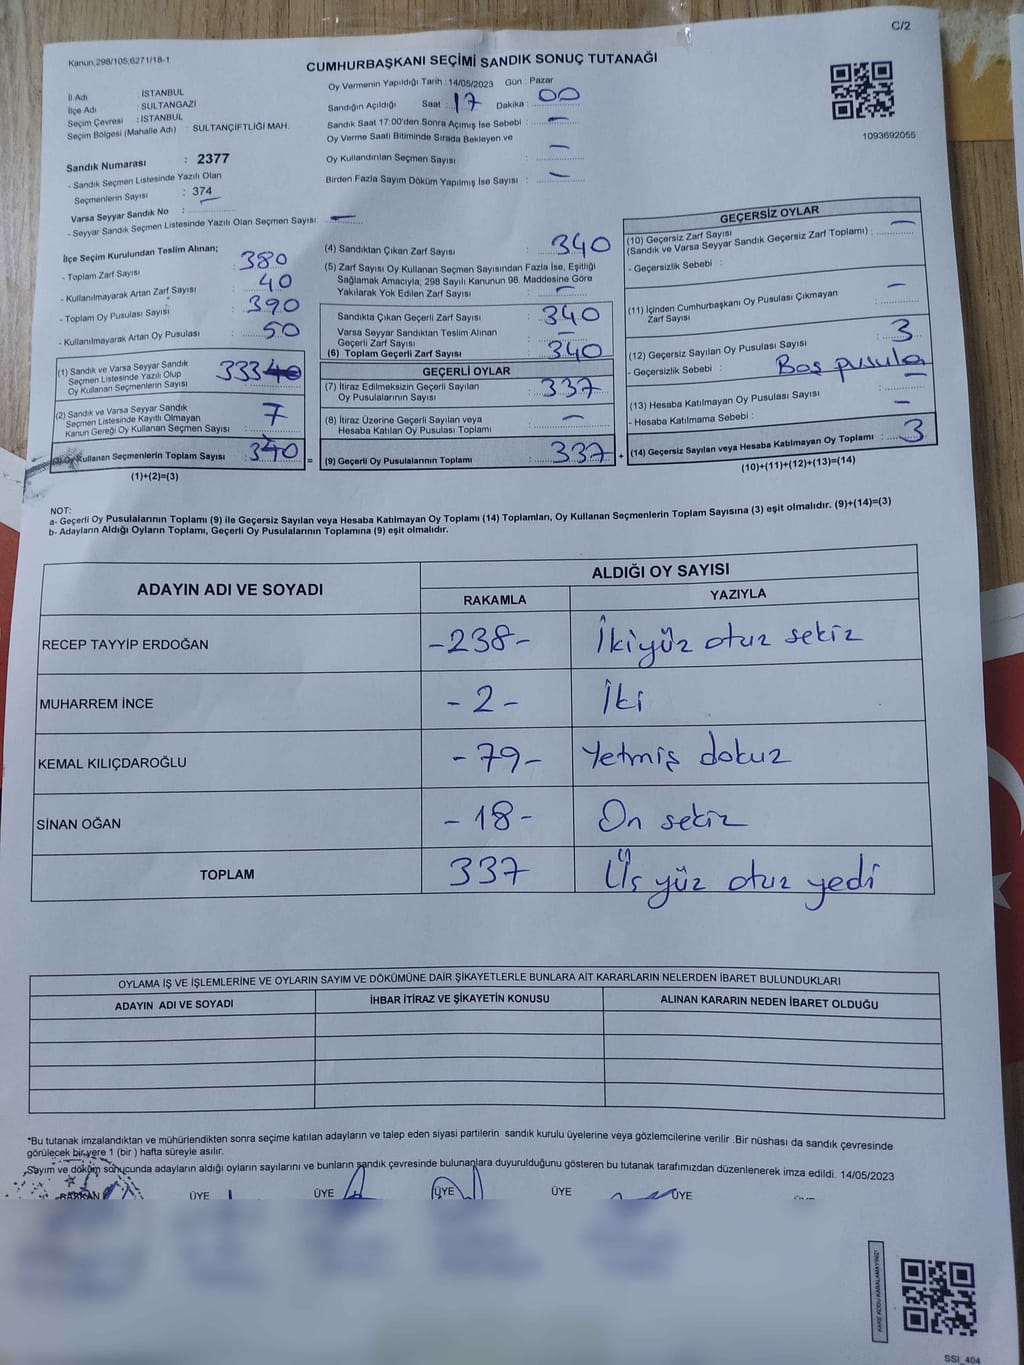 C/2
Kanun:298/105,6271/18-1
CUMHURBAŞKANI SEÇİMİ SANDIK SONUÇ TUTANAĞI
İl Adı : İSTANBUL
İlçe Adı : SULTANGAZİ
Seçim Çevresi : İSTANBUL
Seçim Bölgesi (Mahalle Adı) : SULTANÇİFTLİĞİ MAH.
Sandık Numarası : 2377
- Sandık Seçmen Listesinde Yazılı Olan
Seçmenlerin Sayısı : 374
Varsa Seyyar Sandık No :
- Seyyar Sandık Seçmen Listesinde Yazılı Olan Seçmen Sayısı: —
Oy Vermenin Yapıldığı Tarih : 14/05/2023 Gün : Pazar
Sandığın Açıldığı Saat : 17 Dakika : 00
Sandık Saat 17:00'den Sonra Açımış İse Sebebi : —
Oy Verme Saati Bitiminde Sırada Bekleyen ve
Oy Kullandırılan Seçmen Sayısı : —
Birden Fazla Sayım Döküm Yapılmış İse Sayısı : —
1093692055
İlçe Seçim Kurulundan Teslim Alınan;
- Toplam Zarf Sayısı : 380
- Kullanılmayarak Artan Zarf Sayısı : 40
- Toplam Oy Pusulası Sayısı : 390
- Kullanılmayarak Artan Oy Pusulası : 50
(1) Sandık ve Varsa Seyyar Sandık
Seçmen Listesinde Yazılı Olup
Oy Kullanan Seçmenlerin Sayısı : 333
(2) Sandık ve Varsa Seyyar Sandık
Seçmen Listesinde Kayıtlı Olmayan
Kanun Gereği Oy Kullanan Seçmen Sayısı : 7
(3) Oy Kullanan Seçmenlerin Toplam Sayısı : 340 =
(1)+(2)=(3)
(4) Sandıktan Çıkan Zarf Sayısı : 340
(5) Zarf Sayısı Oy Kullanan Seçmen Sayısından Fazla İse, Eşitliği
Sağlamak Amacıyla; 298 Sayılı Kanunun 98. Maddesine Göre
Yakılarak Yok Edilen Zarf Sayısı : —
Sandıkta Çıkan Geçerli Zarf Sayısı : 340
Varsa Seyyar Sandıktan Teslim Alınan
Geçerli Zarf Sayısı : —
(6) Toplam Geçerli Zarf Sayısı : 340
GEÇERLİ OYLAR
(7) İtiraz Edilmeksizin Geçerli Sayılan
Oy Pusulalarının Sayısı : 337
(8) İtiraz Üzerine Geçerli Sayılan veya
Hesaba Katılan Oy Pusulası Toplamı : —
(9) Geçerli Oy Pusulalarının Toplamı : 337 +
GEÇERSİZ OYLAR
(10) Geçersiz Zarf Sayısı
(Sandık ve Varsa Seyyar Sandık Geçersiz Zarf Toplamı) : —
- Geçersizlik Sebebi :
(11) İçinden Cumhurbaşkanı Oy Pusulası Çıkmayan
Zarf Sayısı : —
(12) Geçersiz Sayılan Oy Pusulası Sayısı : 3
- Geçersizlik Sebebi : Boş pusula
(13) Hesaba Katılmayan Oy Pusulası Sayısı : —
- Hesaba Katılmama Sebebi : —
(14) Geçersiz Sayılan veya Hesaba Katılmayan Oy Toplamı : 3
(10)+(11)+(12)+(13)=(14)
NOT:
a- Geçerli Oy Pusulalarının Toplamı (9) ile Geçersiz Sayılan veya Hesaba Katılmayan Oy Toplamı (14) Toplamları, Oy Kullanan Seçmenlerin Toplam Sayısına (3) eşit olmalıdır. (9)+(14)=(3)
b- Adayların Aldığı Oyların Toplamı, Geçerli Oy Pusulalarının Toplamına (9) eşit olmalıdır.
ADAYIN ADI VE SOYADI
ALDIĞI OY SAYISI
RAKAMLA YAZIYLA
RECEP TAYYİP ERDOĞAN -238- İkiyüz otuz sekiz
MUHARREM İNCE -2- İki
KEMAL KILIÇDAROĞLU -79- Yetmiş dokuz
SİNAN OĞAN -18- On sekiz
TOPLAM 337 Üç yüz otuz yedi
OYLAMA İŞ VE İŞLEMLERİNE VE OYLARIN SAYIM VE DÖKÜMÜNE DAİR ŞİKAYETLERLE BUNLARA AİT KARARLARIN NELERDEN İBARET BULUNDUKLARI
ADAYIN ADI VE SOYADI İHBAR İTİRAZ VE ŞİKAYETİN KONUSU ALINAN KARARIN NEDEN İBARET OLDUĞU
*Bu tutanak imzalandıktan ve mühürlendikten sonra seçime katılan adayların ve talep eden siyasi partilerin sandık kurulu üyelerine veya gözlemcilerine verilir .Bir nüshası da sandık çevresinde
görülecek bir yere 1 (bir ) hafta süreyle asılır.
Sayım ve döküm sonucunda adayların aldığı oyların sayılarını ve bunların sandık çevresinde bulunanlara duyurulduğunu gösteren bu tutanak tarafımızdan düzenlenerek imza edildi. 14/05/2023
BAŞKAN ÜYE ÜYE ÜYE ÜYE ÜYE
KARE KODU KARALAMAYINIZ!
SSI_404